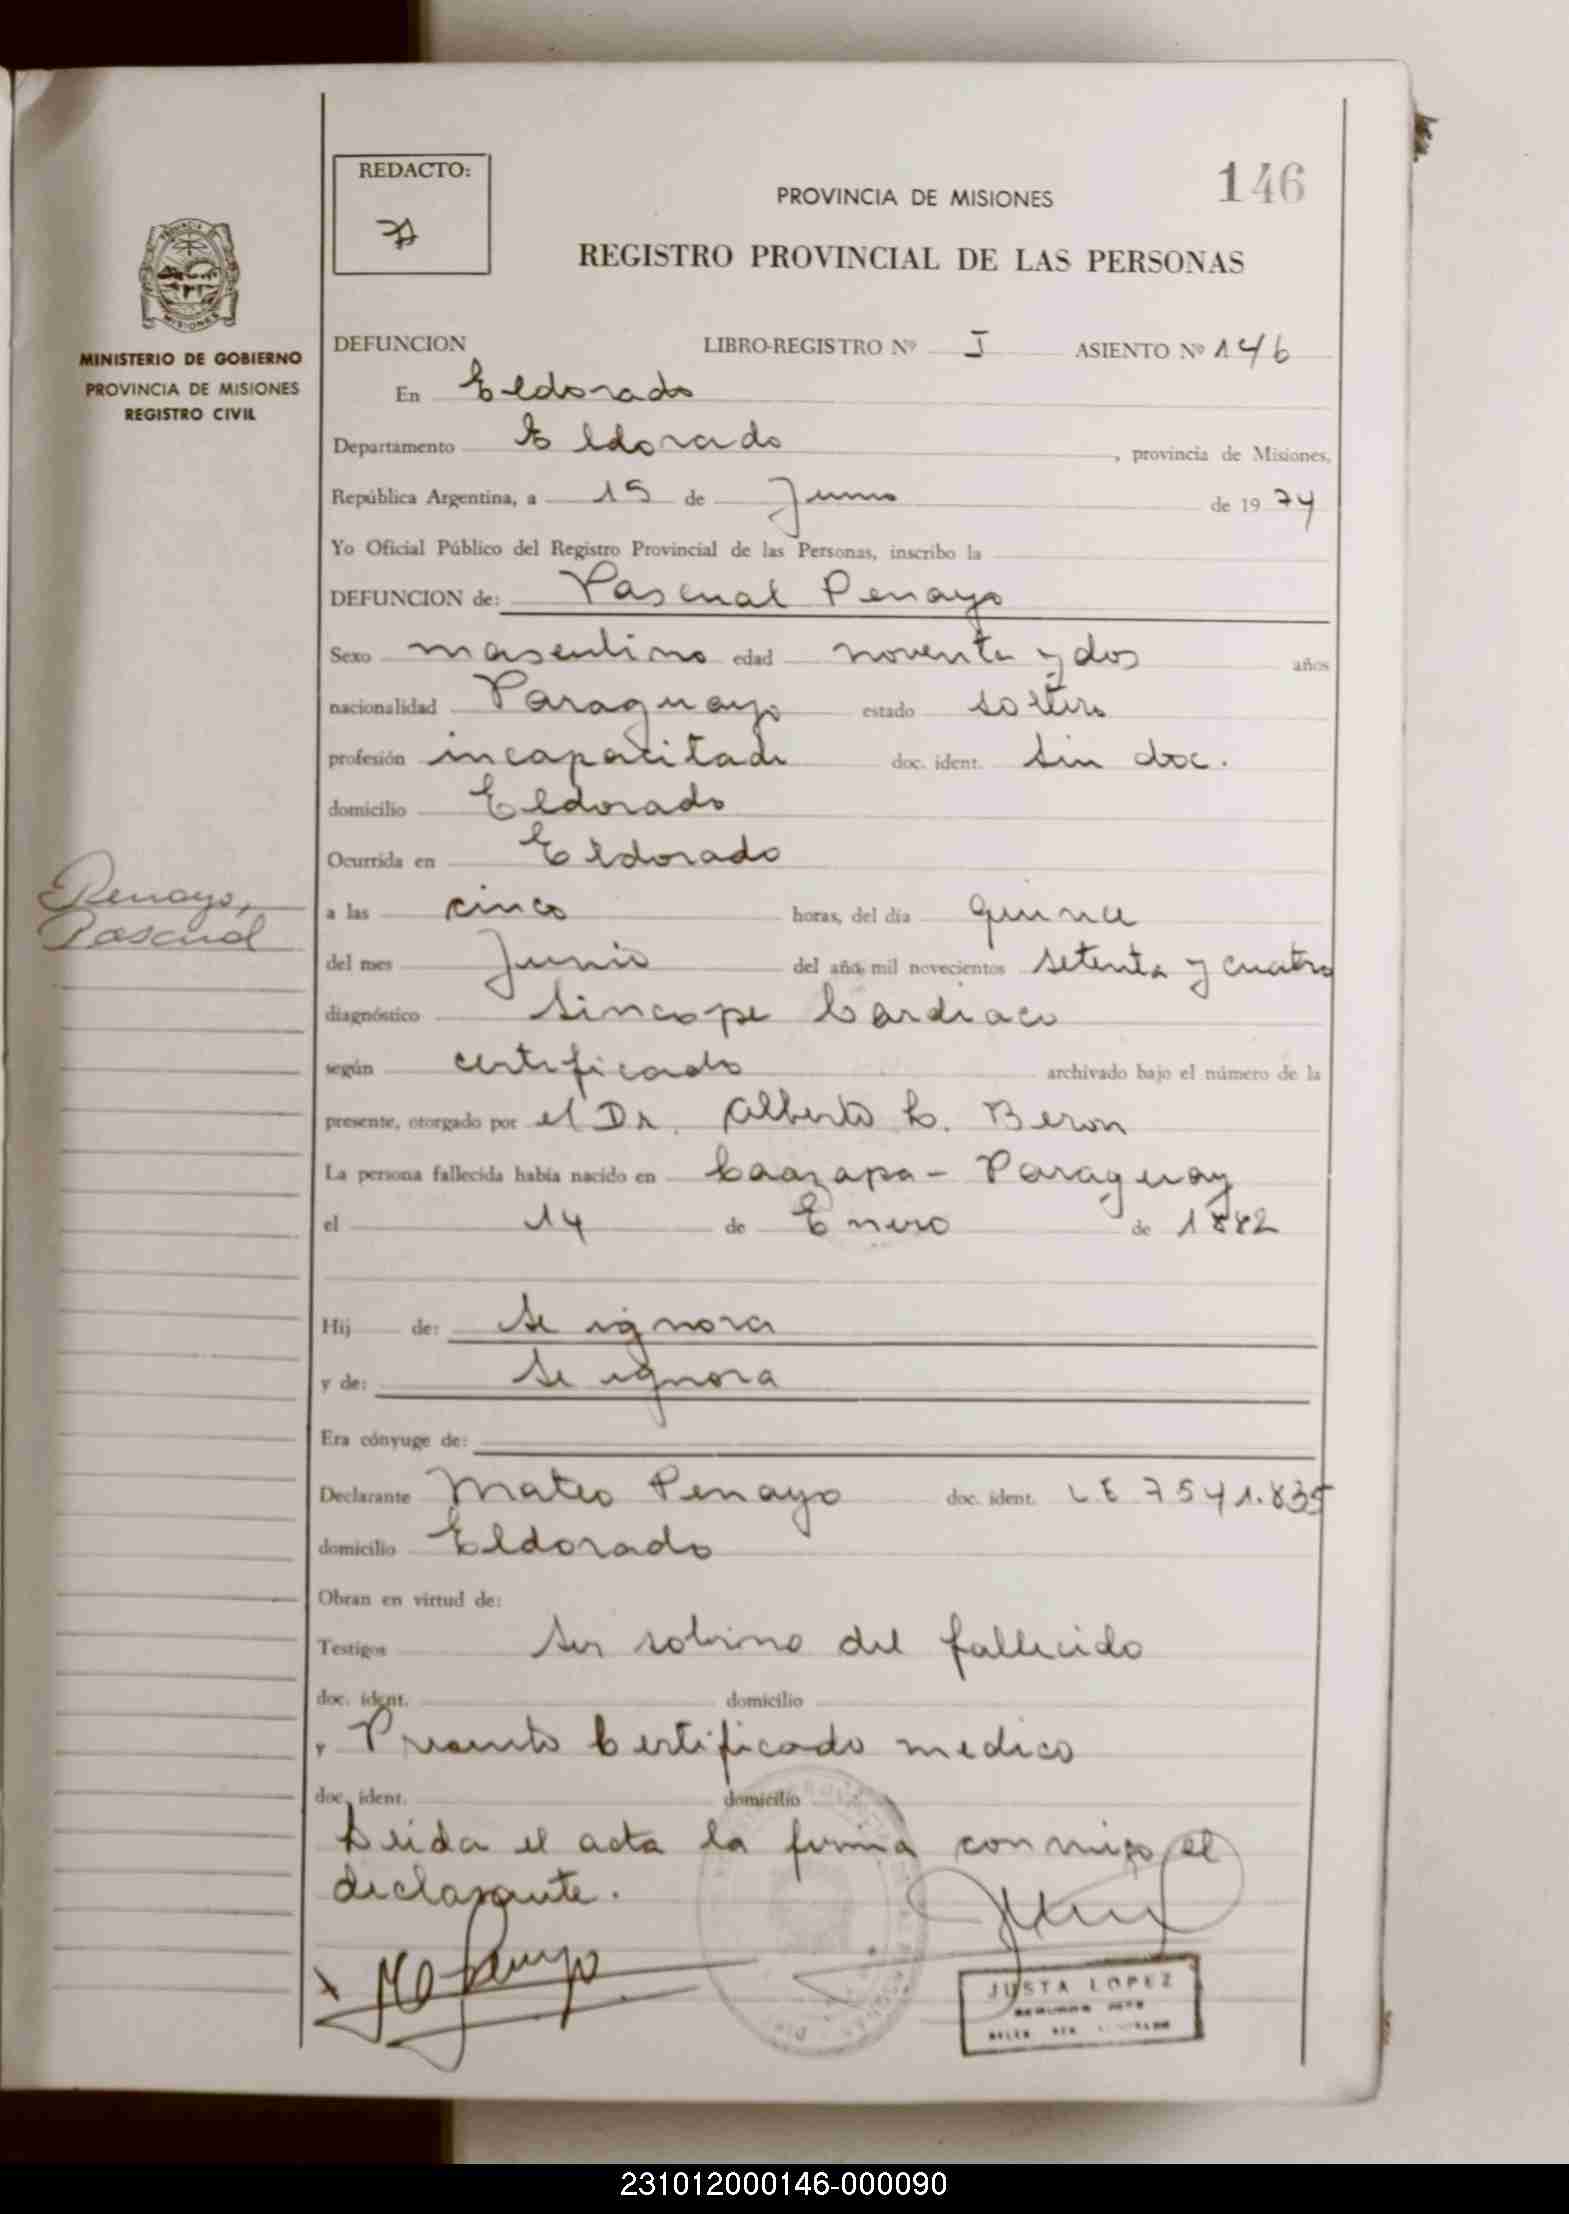 REDACTO:
146
PROVINCIA DE MISIONES
REGISTRO PROVINCIAL DE LAS PERSONAS
MISIONES
MINISTERIO DE GOBIERNO
PROVINCIA DE MISIONES
REGISTRO CIVIL
DEFUNCION LIBRO-REGISTRO Nº I ASIENTO Nº 146
En Eldorado
Departamento Eldorado, provincia de Misiones,
República Argentina, a 15 de Junio de 1974
Yo Oficial Público del Registro Provincial de las Personas, inscribo la
DEFUNCION de: Pascual Penayo
Sexo masculino edad noventa y dos años
nacionalidad Paraguayo estado soltero
profesión incapacitado doc. ident. sin doc.
domicilio Eldorado
Ocurrida en Eldorado
Penayo,
Pascual
a las cinco horas, del día quince
del mes Junio del año mil novecientos setenta y cuatro
diagnóstico Sincope Cardiaco
según certificado archivado bajo el número de la
presente, otorgado por el Dr. Alberto C. Beron
La persona fallecida había nacido en Caazapa - Paraguay
el 14 de Enero de 1882
Hij de: se ignora
y de: se ignora
Era cónyuge de:
Declarante Mateo Penayo doc. ident. L E 7541.835
domicilio Eldorado
Obran en virtud de:
Testigos ser sobrino del fallecido
doc. ident. domicilio
y Presento Certificado medico
doc. ident. domicilio
Leida el acta la firma conmigo el
declarante.
JUSTA LOPEZ
231012000146-000090